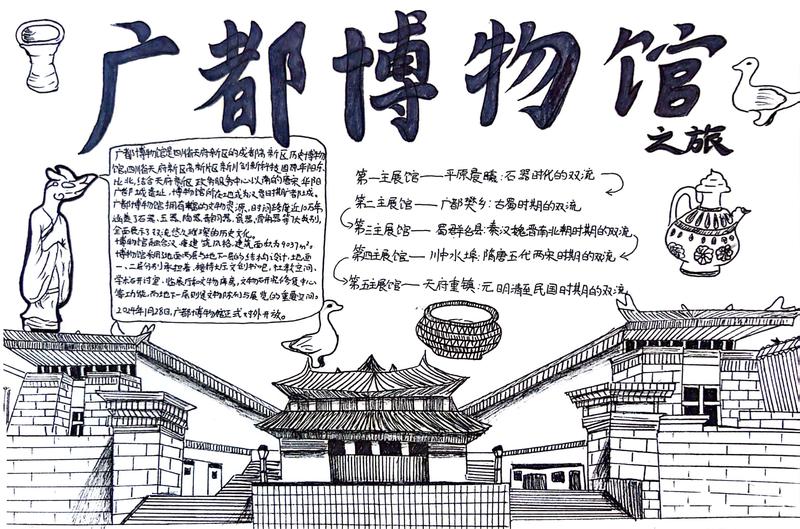 广都博物馆
之旅
广都博物馆是四川省天府新区的成都高新区历史博物
馆,四川省天府新区高新片区新川创新科技园牌坊东
比北,结合天府新区政务服务中心以南的唐宋华阳
广都城遗址,博物馆所在地成为汉昔日旗扩都旧城。
广都博物馆拥有丰富的文物资源,时间跨度近10万年,
涵盖了石器、玉器、陶器、青铜器、瓷器、骨角器等大类别,
全面展示了双流悠久璀璨的历史文化。
博物馆融合汉唐建筑风格,建筑面积为9037m²。
博物馆采用地面两层与地下一层的结构设计,地面
一、二层分别承担着接待大厅文创书吧、社教空间、
学术研讨室、临展厅和文物库房、文物研究修复中心
等功能,而地下一层则是文物陈列与展览的重要空间。
2024年1月28日,广都博物馆正式对外开放。
第一主展馆——平原晨曦:石器时代的双流
第二主展馆——广都樊乡:古蜀时期的双流
第三主展馆——蜀群毕县:秦汉魏晋南北朝时期的双流
第四主展馆——川中水埠:隋唐五代两宋时期的双流
第五主展馆——天府重镇:元明清至民国时期的双流